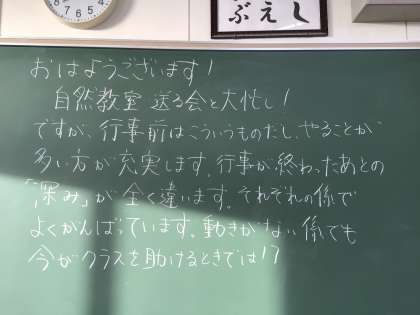 ぶえし
おはようございます!
自然教室 送る会と大忙し!
ですが、行事前はこういうものだし、やることが
多い方が充実します。行事が終わったあとの
「深み」が全く違います。それぞれの係で
よくがんばっています。動きがない係でも
今がクラスを助けるときでは!?